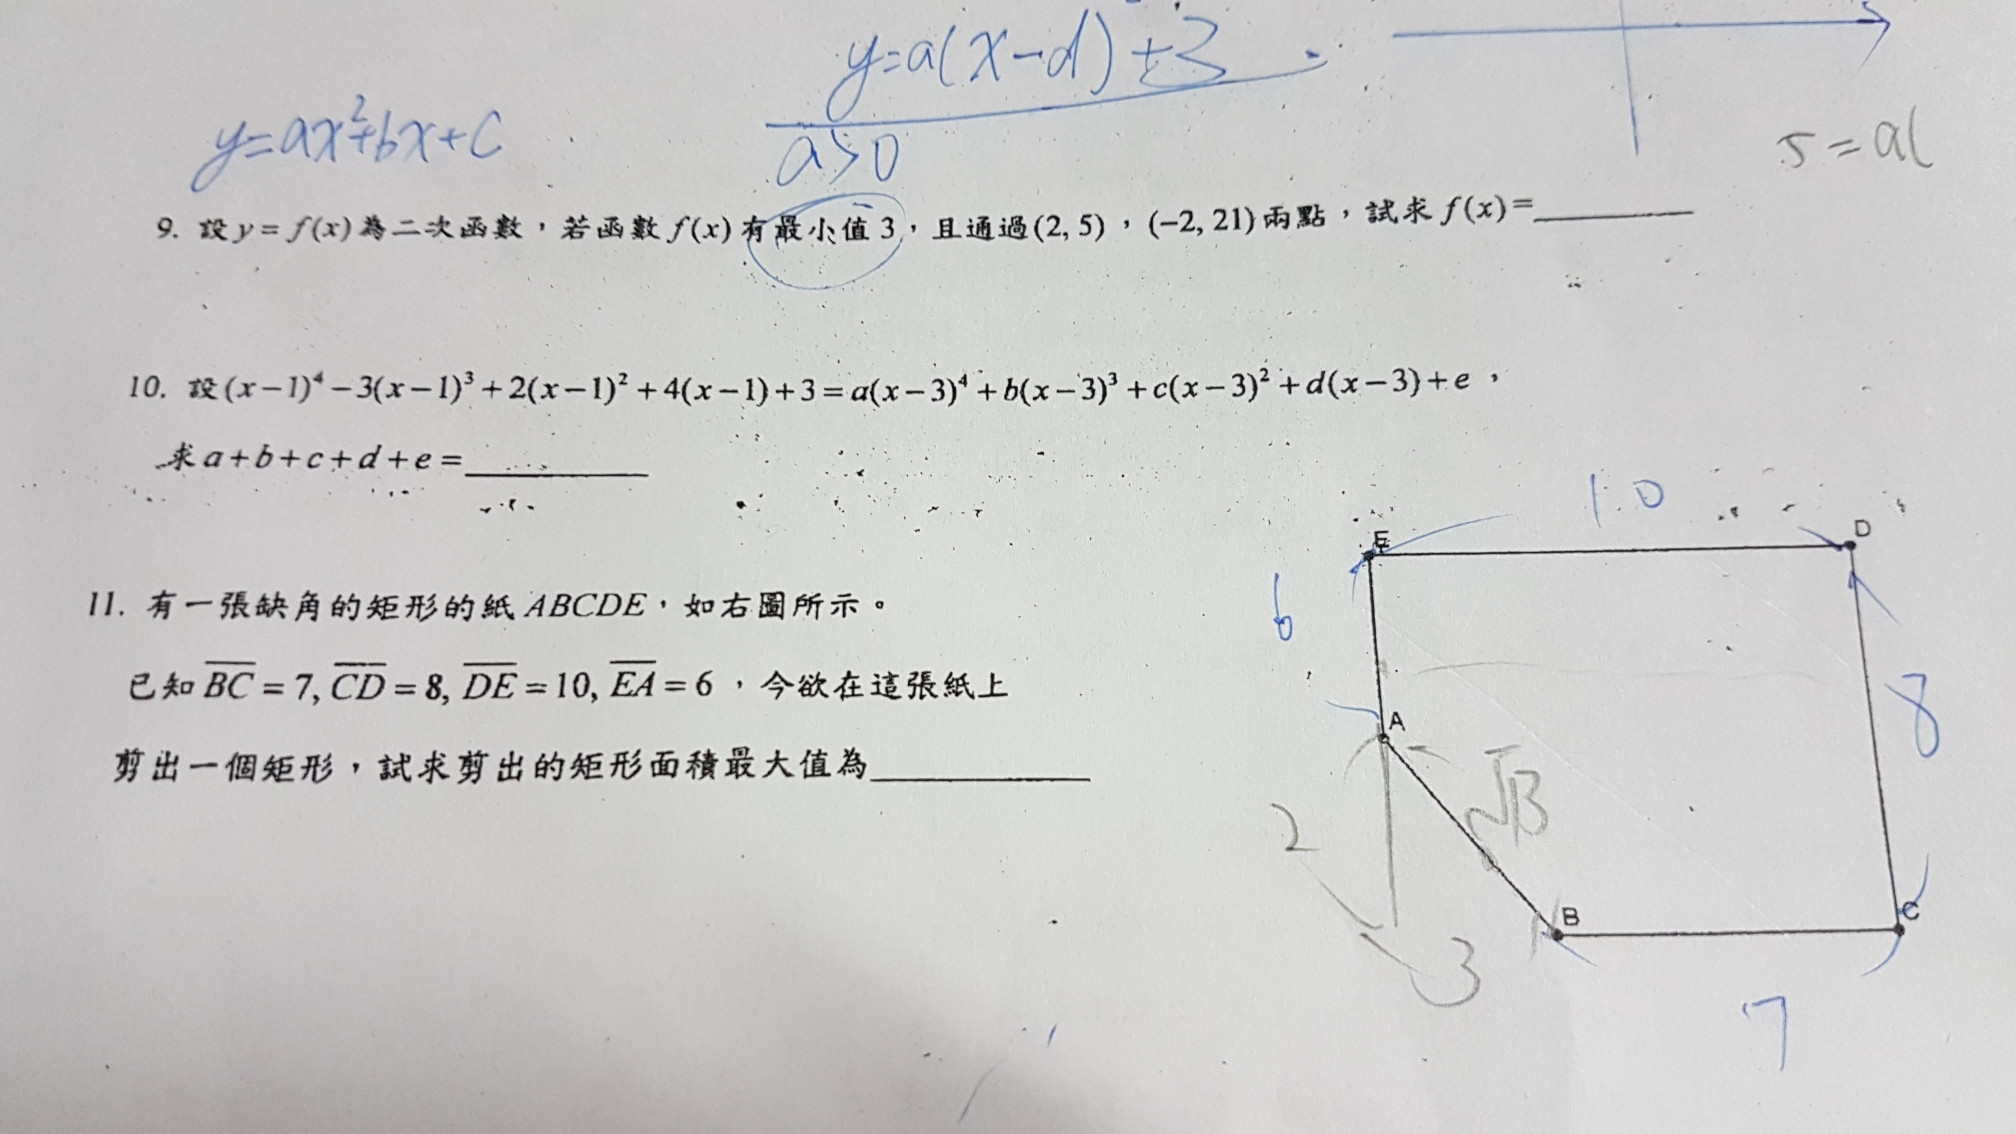 y=a(x-d)+3
y=ax²+bx+c
a>0
5=a(
9. 設 y = f(x) 為二次函數，若函數 f(x) 有最小值 3，且通過(2, 5)，(−2, 21) 兩點，試求 f(x)=
10. 設 (x−1)⁴ −3(x−1)³ + 2(x−1)² + 4(x−1)+3 = a(x−3)⁴ + b(x−3)³ + c(x−3)² + d(x−3)+e，
求 a+b+c+d+e =
11. 有一張缺角的矩形的紙 ABCDE，如右圖所示。
已知 B̅C̅ = 7, C̅D̅ = 8, D̅E̅ = 10, E̅A̅ = 6，今欲在這張紙上
剪出一個矩形，試求剪出的矩形面積最大值為
10
E
D
6
8
A
√13
2
B
C
3
7